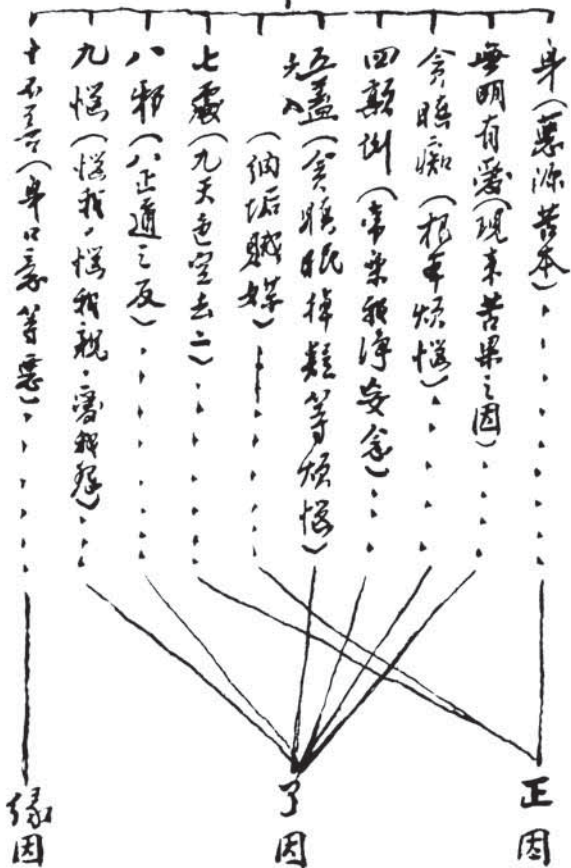 身（惡源苦本）
無明有愛（現未苦果之因）
貪瞋癡（根本煩惱）
四顛倒（常樂我淨妄念）
五蓋（貪瞋眠掉疑等煩惱）
六入（納垢賊媒）
七處（九天色空去二）
八邪（八正道之反）
九惱（惱我，惱我親，愛我怨）
十不善（身口意等惡）
正因
了因
緣因